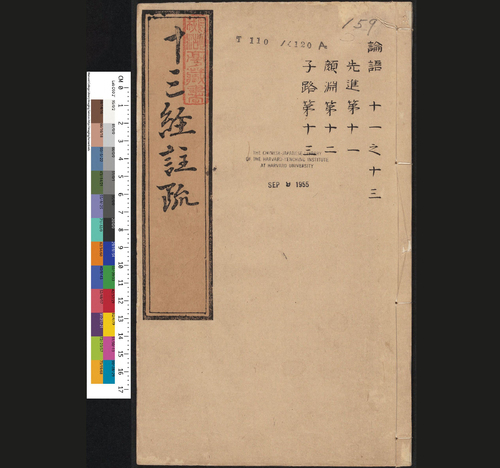 159
論語 十一之十三
先進第十一
顏淵第十二
子路第十三
T 110 /4120 A
THE CHINESE-JAPANESE LIBRARY
OF THE HARVARD-YENCHING INSTITUTE
AT HARVARD UNIVERSITY
SEP 1955
十三經註疏
CM 0 1 2 3 4 5 6 7 8 9 10 11 12 13 14 15 16 17